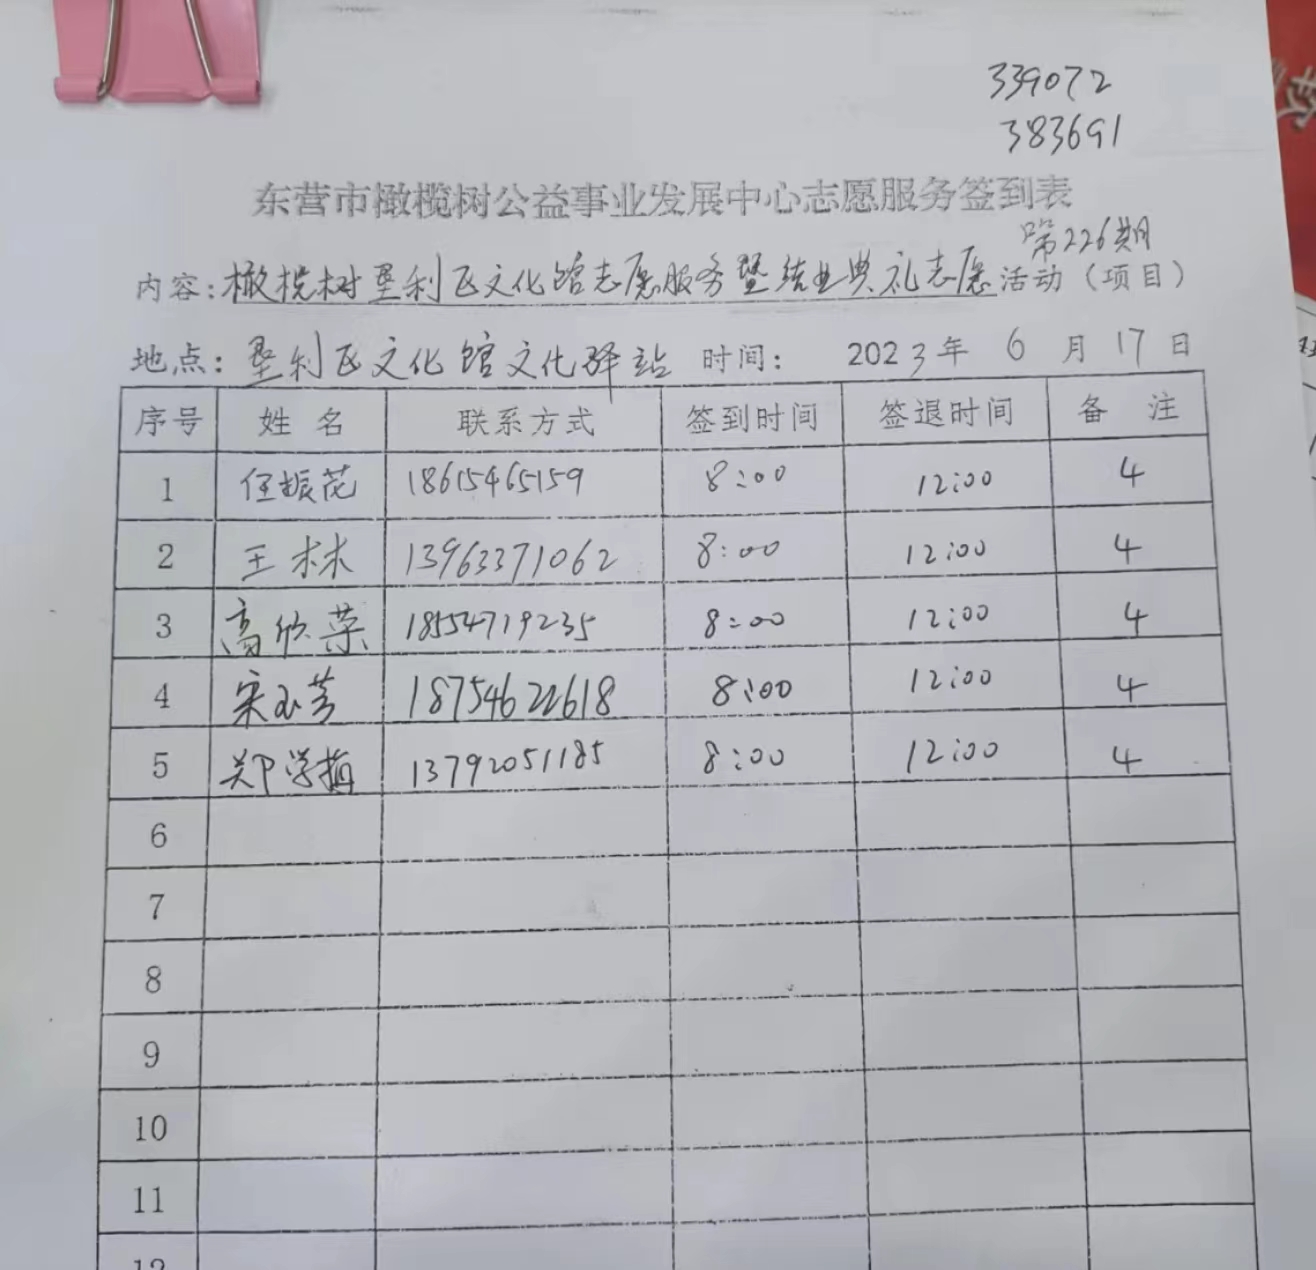 339072
383691
东营市橄榄树公益事业发展中心志愿服务签到表
第226期
内容：橄榄树垦利区文化馆志愿服务暨结业典礼志愿活动（项目）
地点：垦利区文化馆文化驿站 时间： 2023年 6 月 17 日
序号 姓名 联系方式 签到时间 签退时间 备 注
1 任振花 18615465159 8:00 12:00 4
2 王林 13963371062 8:00 12:00 4
3 高欣荣 18554719235 8:00 12:00 4
4 宋玉芳 18754622618 8:00 12:00 4
5 郑学梅 13792051185 8:00 12:00 4
6
7
8
9
10
11
12